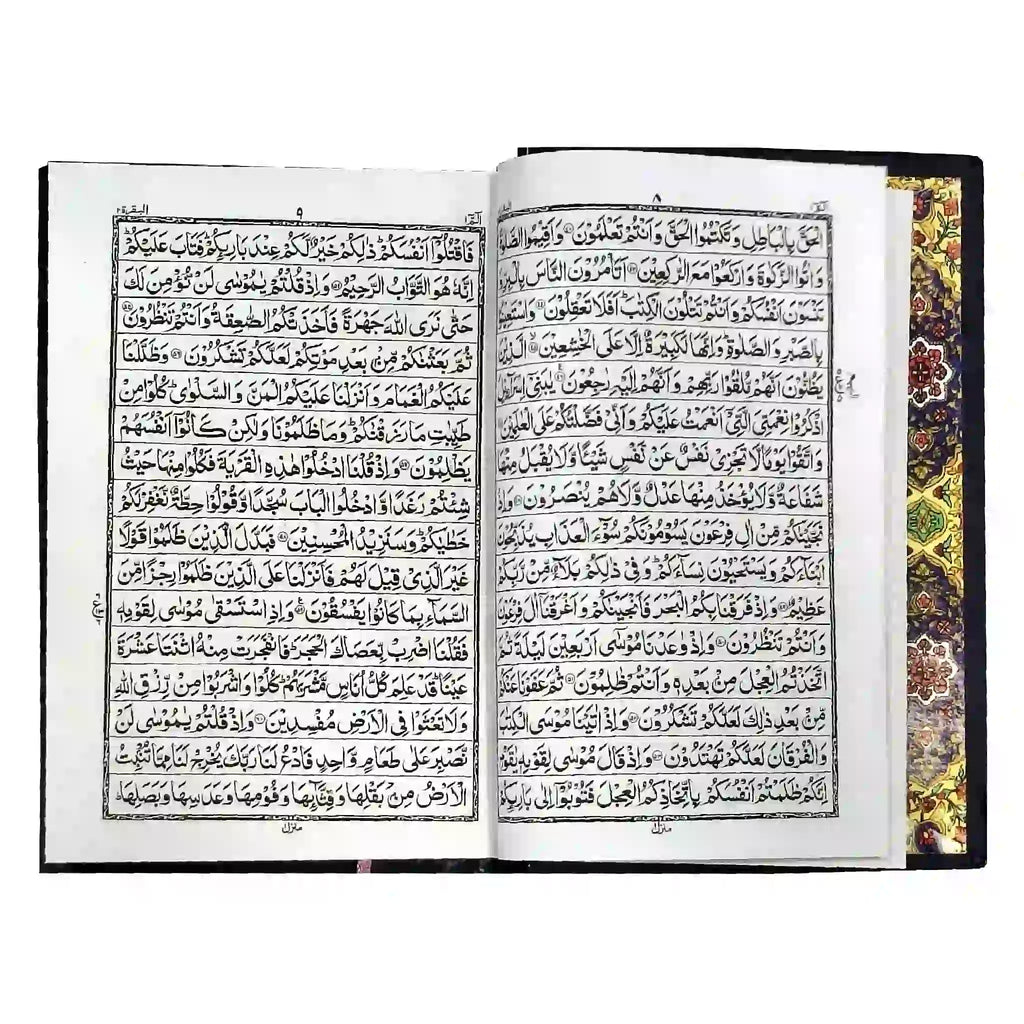 الٓمّٓ ٨
الْحَقَّ بِالْبَاطِلِ وَتَكْتُمُوا الْحَقَّ وَاَنْتُمْ تَعْلَمُوْنَ ۝٤٢ وَاَقِيْمُوا الصَّلٰو
وَاٰتُوا الزَّكٰوةَ وَارْكَعُوْا مَعَ الرّٰكِعِيْنَ ۝٤٣ اَتَاْمُرُوْنَ النَّاسَ بِالْبِرِّ
تَنْسَوْنَ اَنْفُسَكُمْ وَاَنْتُمْ تَتْلُوْنَ الْكِتٰبَ ؕ اَفَلَا تَعْقِلُوْنَ ۝٤٤ وَاسْتَعِيْنُ
بِالصَّبْرِ وَالصَّلٰوةِ ؕ وَاِنَّهَا لَكَبِيْرَةٌ اِلَّا عَلَى الْخٰشِعِيْنَ ۝٤٥ الَّذِيْنَ
يَظُنُّوْنَ اَنَّهُمْ مُّلٰقُوْا رَبِّهِمْ وَاَنَّهُمْ اِلَيْهِ رٰجِعُوْنَ ۝٤٦ يٰبَنِيْٓ اِسْرَآءِيْلَ
اذْكُرُوْا نِعْمَتِيَ الَّتِيْٓ اَنْعَمْتُ عَلَيْكُمْ وَاَنِّيْ فَضَّلْتُكُمْ عَلَى الْعٰلَمِيْنَ
وَاتَّقُوْا يَوْمًا لَّا تَجْزِيْ نَفْسٌ عَنْ نَّفْسٍ شَيْئًا وَّلَا يُقْبَلُ مِنْهَا
شَفَاعَةٌ وَّلَا يُؤْخَذُ مِنْهَا عَدْلٌ وَّلَا هُمْ يُنْصَرُوْنَ ۝٤٨ وَاِذْ
نَجَّيْنٰكُمْ مِّنْ اٰلِ فِرْعَوْنَ يَسُوْمُوْنَكُمْ سُوْٓءَ الْعَذَابِ يُذَبِّحُوْنَ
اَبْنَآءَكُمْ وَيَسْتَحْيُوْنَ نِسَآءَكُمْ ؕ وَفِيْ ذٰلِكُمْ بَلَآءٌ مِّنْ رَّبِّكُمْ
عَظِيْمٌ ۝٤٩ وَاِذْ فَرَقْنَا بِكُمُ الْبَحْرَ فَاَنْجَيْنٰكُمْ وَاَغْرَقْنَآ اٰلَ فِرْعَوْنَ
وَاَنْتُمْ تَنْظُرُوْنَ ۝٥٠ وَاِذْ وٰعَدْنَا مُوْسٰٓى اَرْبَعِيْنَ لَيْلَةً ثُمَّ
اتَّخَذْتُمُ الْعِجْلَ مِنْۢ بَعْدِهٖ وَاَنْتُمْ ظٰلِمُوْنَ ۝٥١ ثُمَّ عَفَوْنَا عَنْكُمْ
مِّنْۢ بَعْدِ ذٰلِكَ لَعَلَّكُمْ تَشْكُرُوْنَ ۝٥٢ وَاِذْ اٰتَيْنَا مُوْسَى الْكِتٰبَ
وَالْفُرْقَانَ لَعَلَّكُمْ تَهْتَدُوْنَ ۝٥٣ وَاِذْ قَالَ مُوْسٰى لِقَوْمِهٖ يٰقَوْمِ
اِنَّكُمْ ظَلَمْتُمْ اَنْفُسَكُمْ بِاتِّخَاذِكُمُ الْعِجْلَ فَتُوْبُوْٓا اِلٰى بَارِئِكُمْ
منزل ١
الٓمّٓ ١ ٩ البقرة ٢
فَاقْتُلُوْٓا اَنْفُسَكُمْ ؕ ذٰلِكُمْ خَيْرٌ لَّكُمْ عِنْدَ بَارِئِكُمْ ؕ فَتَابَ عَلَيْكُمْ ؕ
اِنَّهٗ هُوَ التَّوَّابُ الرَّحِيْمُ ۝٥٤ وَاِذْ قُلْتُمْ يٰمُوْسٰى لَنْ نُّؤْمِنَ لَكَ
حَتّٰى نَرَى اللّٰهَ جَهْرَةً فَاَخَذَتْكُمُ الصّٰعِقَةُ وَاَنْتُمْ تَنْظُرُوْنَ ۝٥٥
ثُمَّ بَعَثْنٰكُمْ مِّنْۢ بَعْدِ مَوْتِكُمْ لَعَلَّكُمْ تَشْكُرُوْنَ ۝٥٦ وَظَلَّلْنَا
عَلَيْكُمُ الْغَمَامَ وَاَنْزَلْنَا عَلَيْكُمُ الْمَنَّ وَالسَّلْوٰى ؕ كُلُوْا مِنْ
طَيِّبٰتِ مَا رَزَقْنٰكُمْ ؕ وَمَا ظَلَمُوْنَا وَلٰكِنْ كَانُوْٓا اَنْفُسَهُمْ
يَظْلِمُوْنَ ۝٥٧ وَاِذْ قُلْنَا ادْخُلُوْا هٰذِهِ الْقَرْيَةَ فَكُلُوْا مِنْهَا حَيْثُ
شِئْتُمْ رَغَدًا وَّادْخُلُوا الْبَابَ سُجَّدًا وَّقُوْلُوْا حِطَّةٌ نَّغْفِرْ لَكُمْ
خَطٰيٰكُمْ ؕ وَسَنَزِيْدُ الْمُحْسِنِيْنَ ۝٥٨ فَبَدَّلَ الَّذِيْنَ ظَلَمُوْا قَوْلًا
غَيْرَ الَّذِيْ قِيْلَ لَهُمْ فَاَنْزَلْنَا عَلَى الَّذِيْنَ ظَلَمُوْا رِجْزًا مِّنَ
السَّمَآءِ بِمَا كَانُوْا يَفْسُقُوْنَ ۝٥٩ وَاِذِ اسْتَسْقٰى مُوْسٰى لِقَوْمِهٖ
فَقُلْنَا اضْرِبْ بِّعَصَاكَ الْحَجَرَ ؕ فَانْفَجَرَتْ مِنْهُ اثْنَتَا عَشْرَةَ
عَيْنًا ؕ قَدْ عَلِمَ كُلُّ اُنَاسٍ مَّشْرَبَهُمْ ؕ كُلُوْا وَاشْرَبُوْا مِنْ رِّزْقِ اللّٰهِ
وَلَا تَعْثَوْا فِي الْاَرْضِ مُفْسِدِيْنَ ۝٦٠ وَاِذْ قُلْتُمْ يٰمُوْسٰى لَنْ
نَّصْبِرَ عَلٰى طَعَامٍ وَّاحِدٍ فَادْعُ لَنَا رَبَّكَ يُخْرِجْ لَنَا مِمَّا تُنْۢبِتُ
الْاَرْضُ مِنْۢ بَقْلِهَا وَقِثَّآئِهَا وَفُوْمِهَا وَعَدَسِهَا وَبَصَلِهَا ؕ
منزل ١